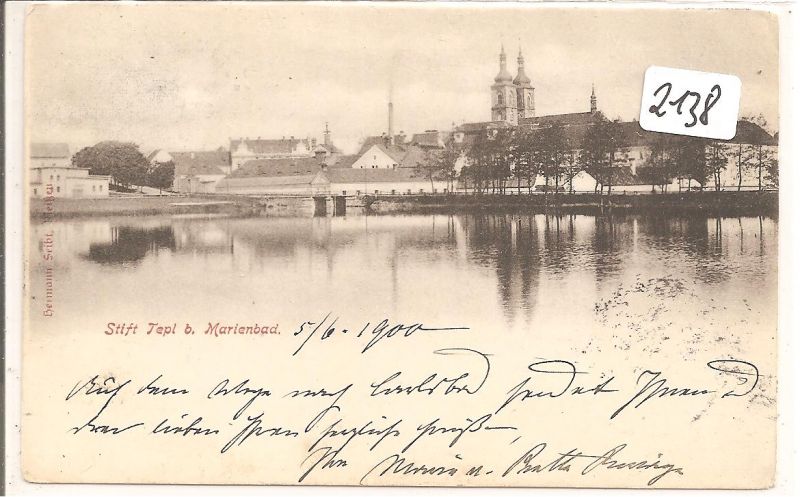 2138
Hermann Seibt, Meißen
Stift Tepl b. Marienbad. 5/6. 1900
Auf dem Wege nach Carlsbad sendet Ihnen u
lieben herzliche Grüße
Marie u.